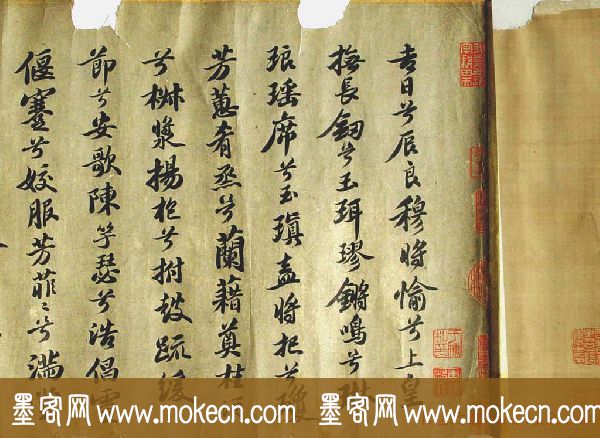 吉日兮辰良穆將愉兮上皇
撫長劒兮玉珥璆鏘鳴兮琳
琅瑶席兮玉瑱盍將把兮瓊
芳蕙肴烝兮蘭藉奠桂
兮椒漿揚枹兮拊鼓疏緩
節兮安歌陳竽瑟兮浩倡靈
偃蹇兮姣服芳菲〻兮滿
墨客网 www.mokecn.com 墨客网 www.mokecn.com